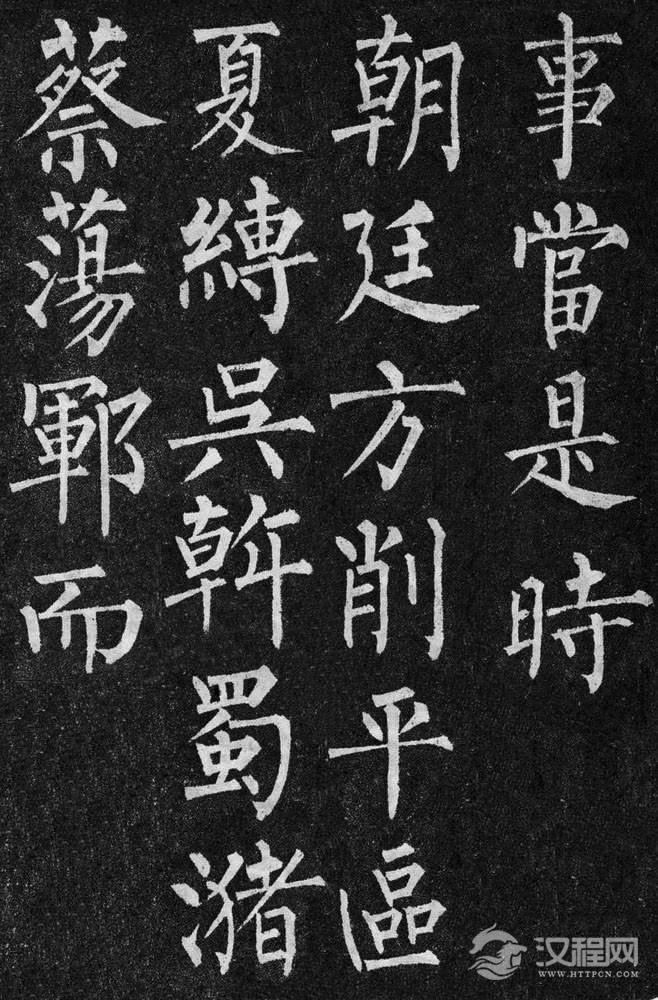 事當是時
朝廷方削平區
夏縛吳斡蜀潴
蔡蕩鄆而
汉程网
WWW.HTTPCN.COM